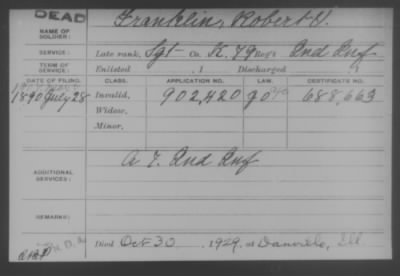 DEAD
NAME OF SOLDIER: Franklin, Robert H.
SERVICE: Late rank, Sgt Co. K, 79 Reg't Ind Inf
TERM OF SERVICE: Enlisted , 1 Discharged
DATE OF FILING. CLASS. APPLICATION NO. LAW. CERTIFICATE NO.
1890 July 28 Invalid, 902,420 688,663
Widow,
Minor,
ADDITIONAL SERVICES: A 7. Ind Inf
REMARKS:
Died Oct 30, 1929, at Danville, Ill